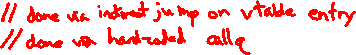 // done via indirect jump on vtable entry
// done via hard-coded callq